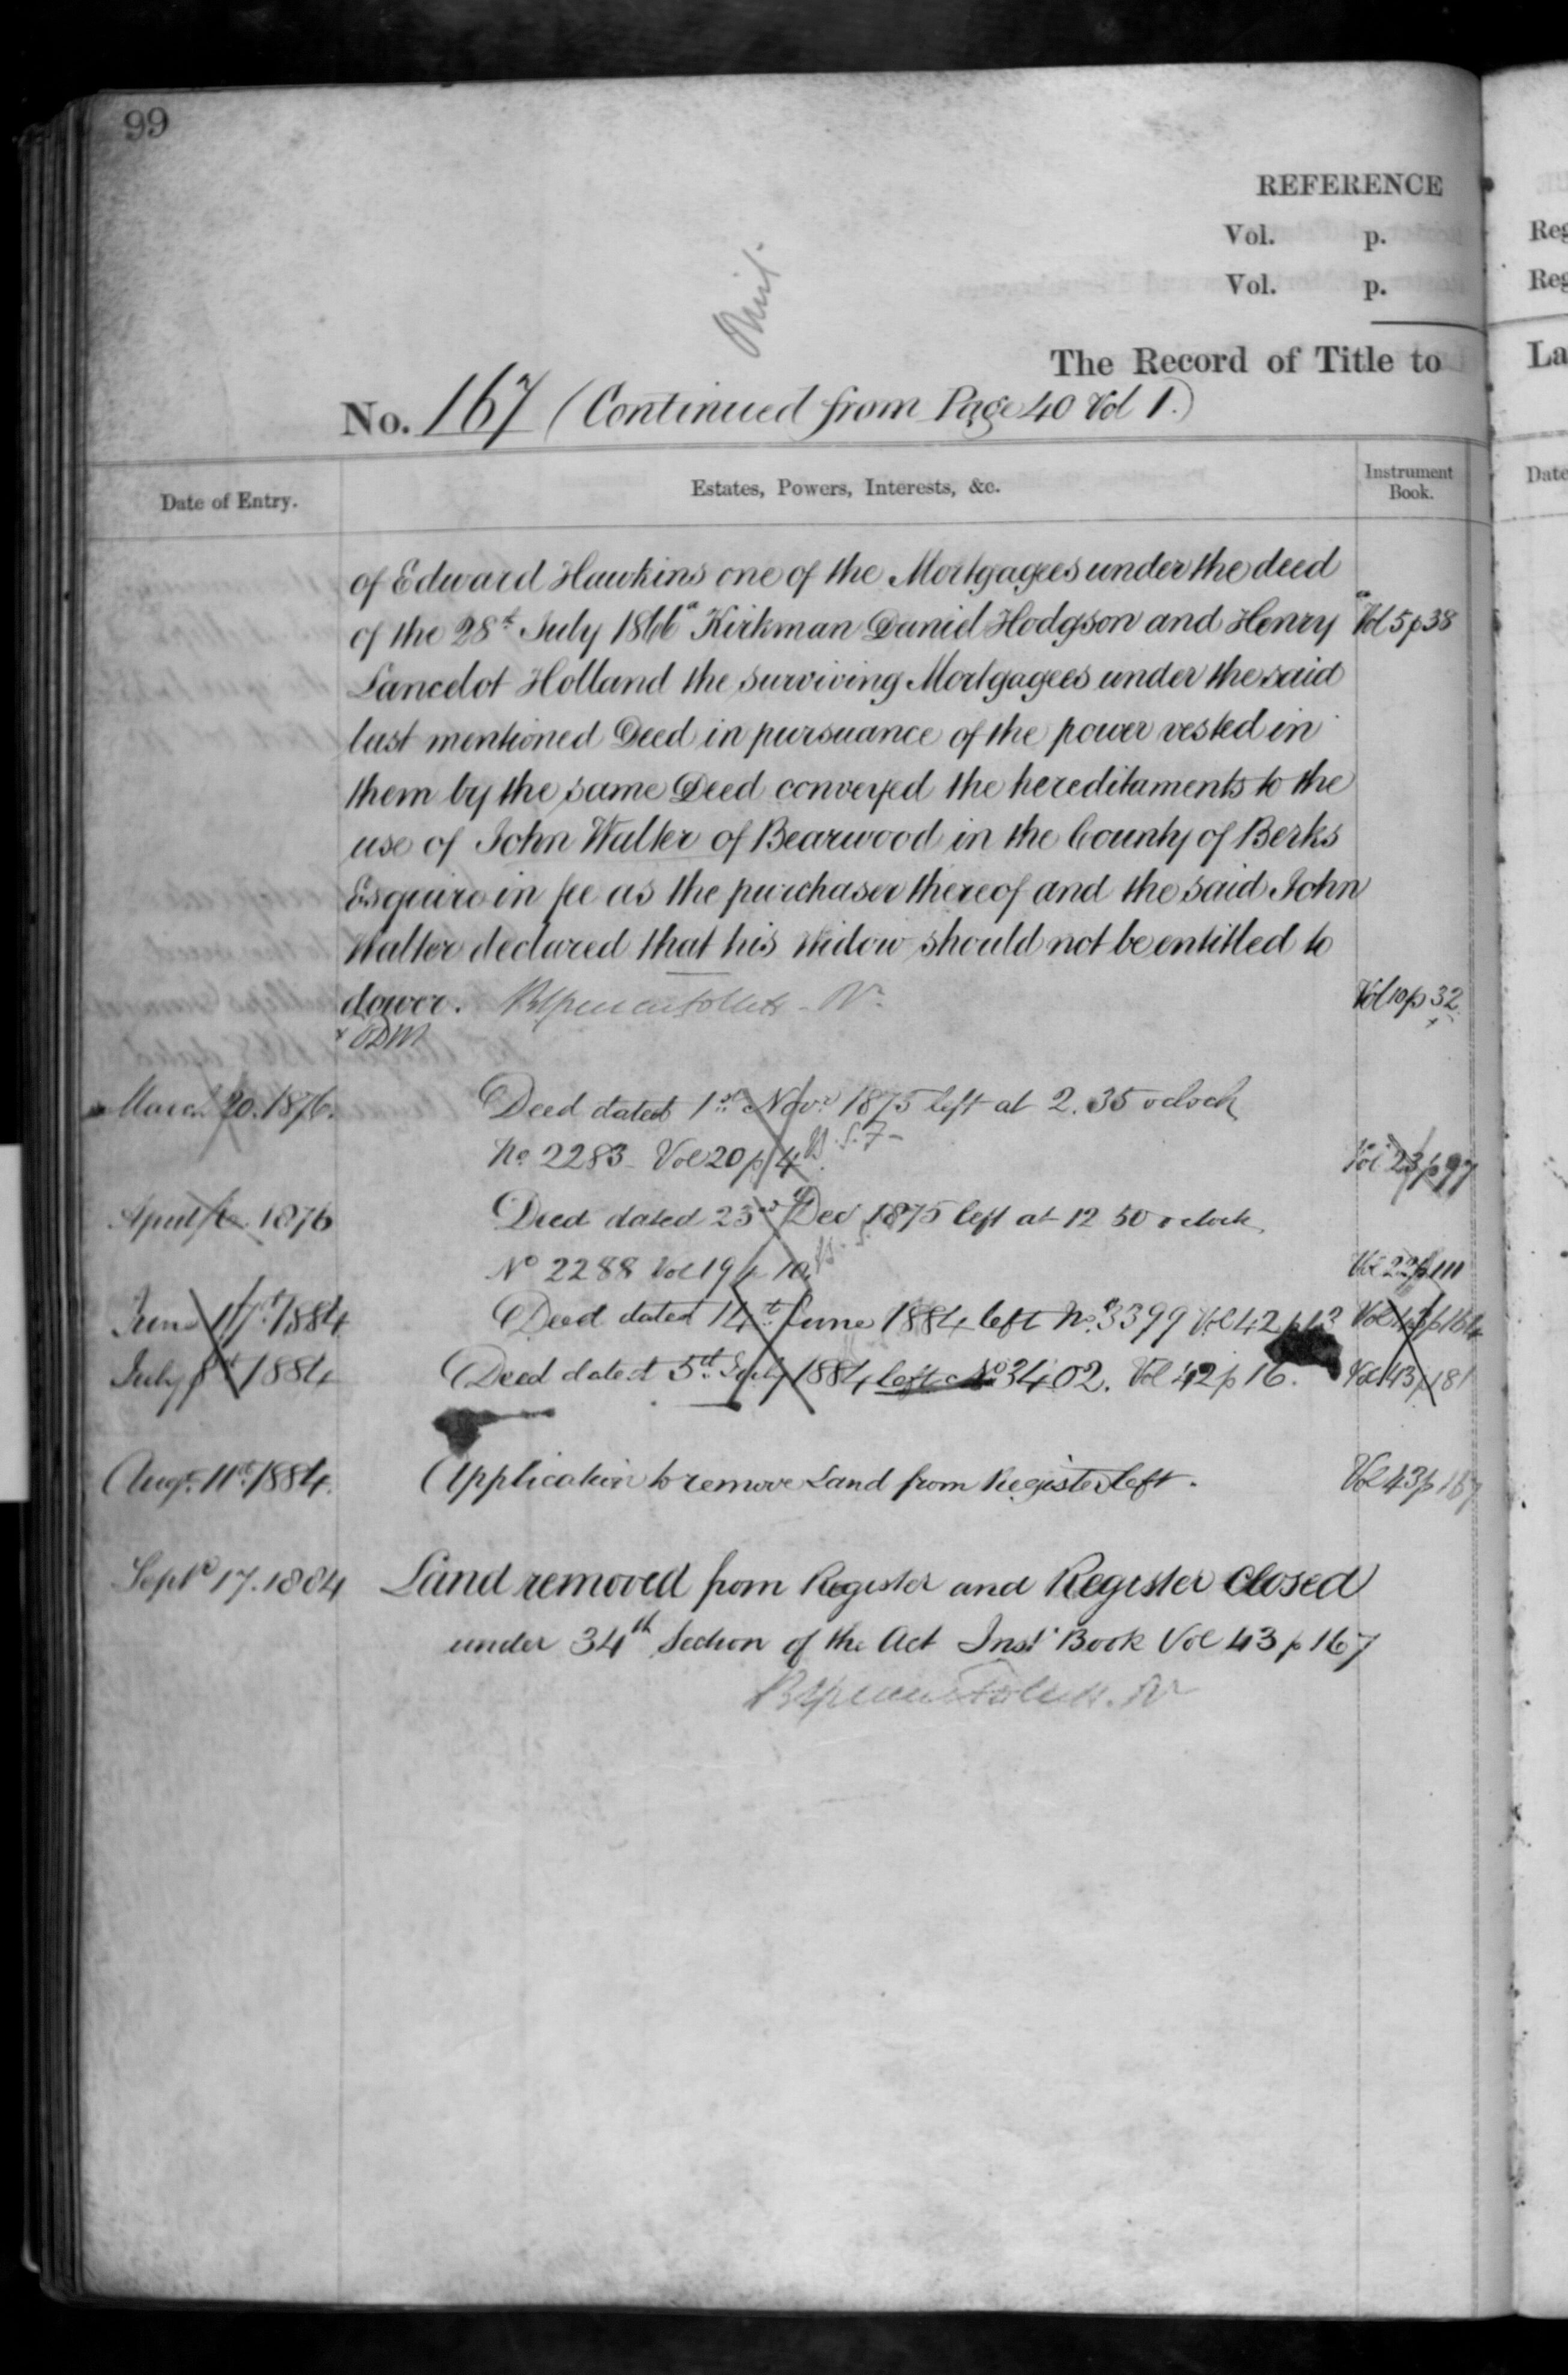 99
REFERENCE
Vol. p.
Vol. p.
Omit.
The Record of Title to
No. 167 (Continued from Page 40 Vol 1.)
Date of Entry. Estates, Powers, Interests, &c. Instrument Book.
of Edward Hawkins one of the Mortgagees under the deed
of the 28th July 1866 Kirkman Daniel Hodgson and Henry Vol 5 p 38
Lancelot Holland the surviving Mortgagees under the said
last mentioned Deed in pursuance of the power vested in
them by the same Deed conveyed the hereditaments to the
use of John Walter of Bearwood in the County of Berks
Esquire in fee as the purchaser thereof and the said John
Walter declared that his Widow should not be entitled to
dower. Vol 10 p 32
March 20. 1876. Deed dated 1st Novr 1875 left at 2.35 oclock
No 2283 Vol 20 p 4 Vol 23 p 97
April 6 1876 Deed dated 23rd Dec 1875 left at 12 50 oclock
No 2288 Vol 19 p 10 Vol 22 p 111
June 17th 1884 Deed dated 14th June 1884 left No. 3399 Vol 42 p 13 Vol 43 p 164
July 8th 1884 Deed dated 5th July 1884 left No 3402. Vol 42 p 16. Vol 43 p 181
Augt. 11th 1884. Application to remove Land from Register left. Vol 43 p 167
Septr 17. 1884 Land removed from Register and Register closed
under 34th Section of the Act Inst Book Vol 43 p 167